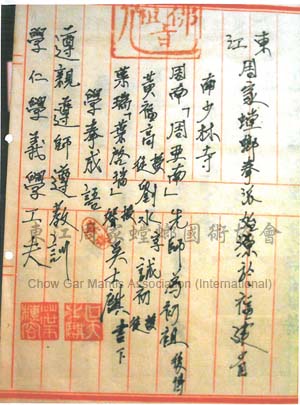 東江周家螳螂拳派始源於福建省
南少林寺
周南「周亞南」先師為初祖後傳
黃福高 授徒 劉水等誠初 授
葉瑞「葉啓瑞」授 吳士騏書下
學拳成語
遵親遵師遵教訓
學仁學義學工夫
東江周家螳螂國術會
Chow Gar Mantis Association (International)